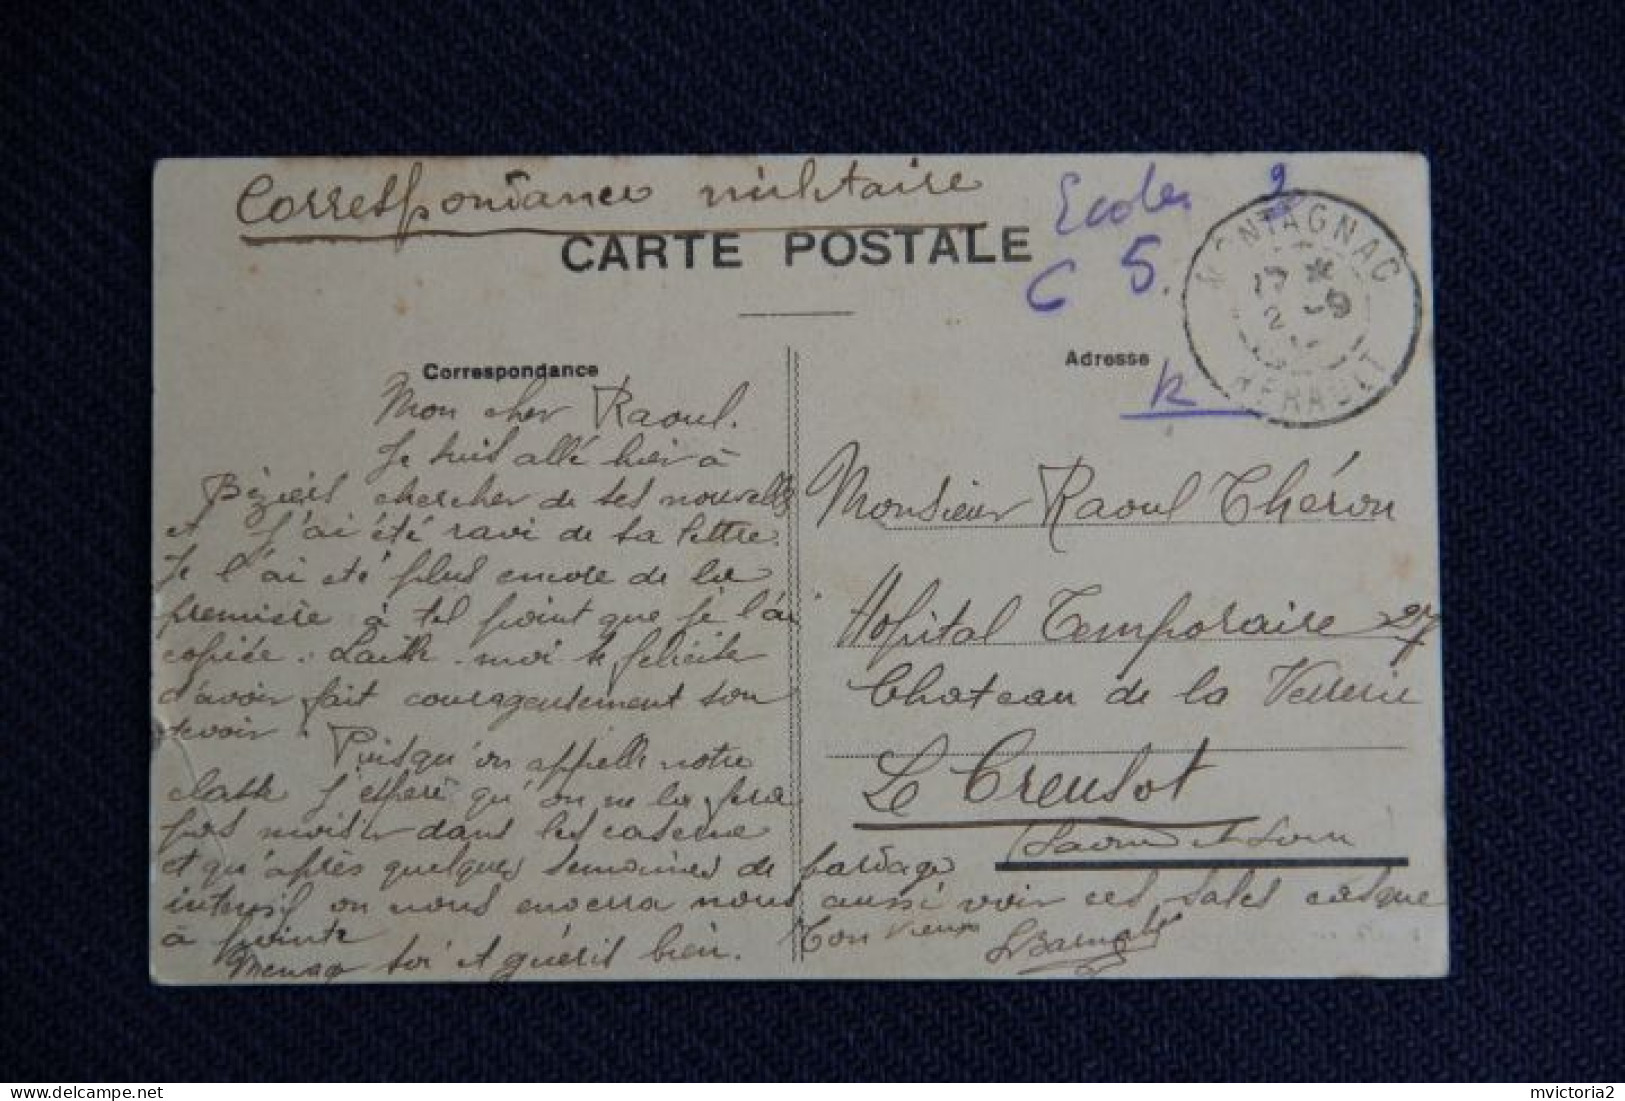 Correspondance militaire
Ecoles 2
C 5.
MONTAGNAC
17 * -9
2
HERAULT
CARTE POSTALE
Correspondance
Adresse
Mon cher Raoul.
Je suis allé hier à
Béziers chercher de tes nouvelles
et j'ai été ravi de ta lettre.
Je l'ai été plus encore de la
première à tel point que je l'ai
copiée. Laisse-moi te féliciter
d'avoir fait courageusement ton
devoir.
Puisqu'on appelle notre
classe j'espère qu'on ne la fera
pas moisir dans les caserne
et qu'après quelques semaines de
intensif on nous enverra nous aussi voir ces sales casque
à pointe
Menage toi et guéris bien. Ton vieux
Monsieur Raoul Théron
Hopital Temporaire 27
Chateau de la Verrerie
Le Creusot
Saone et Loire
mvictoria2